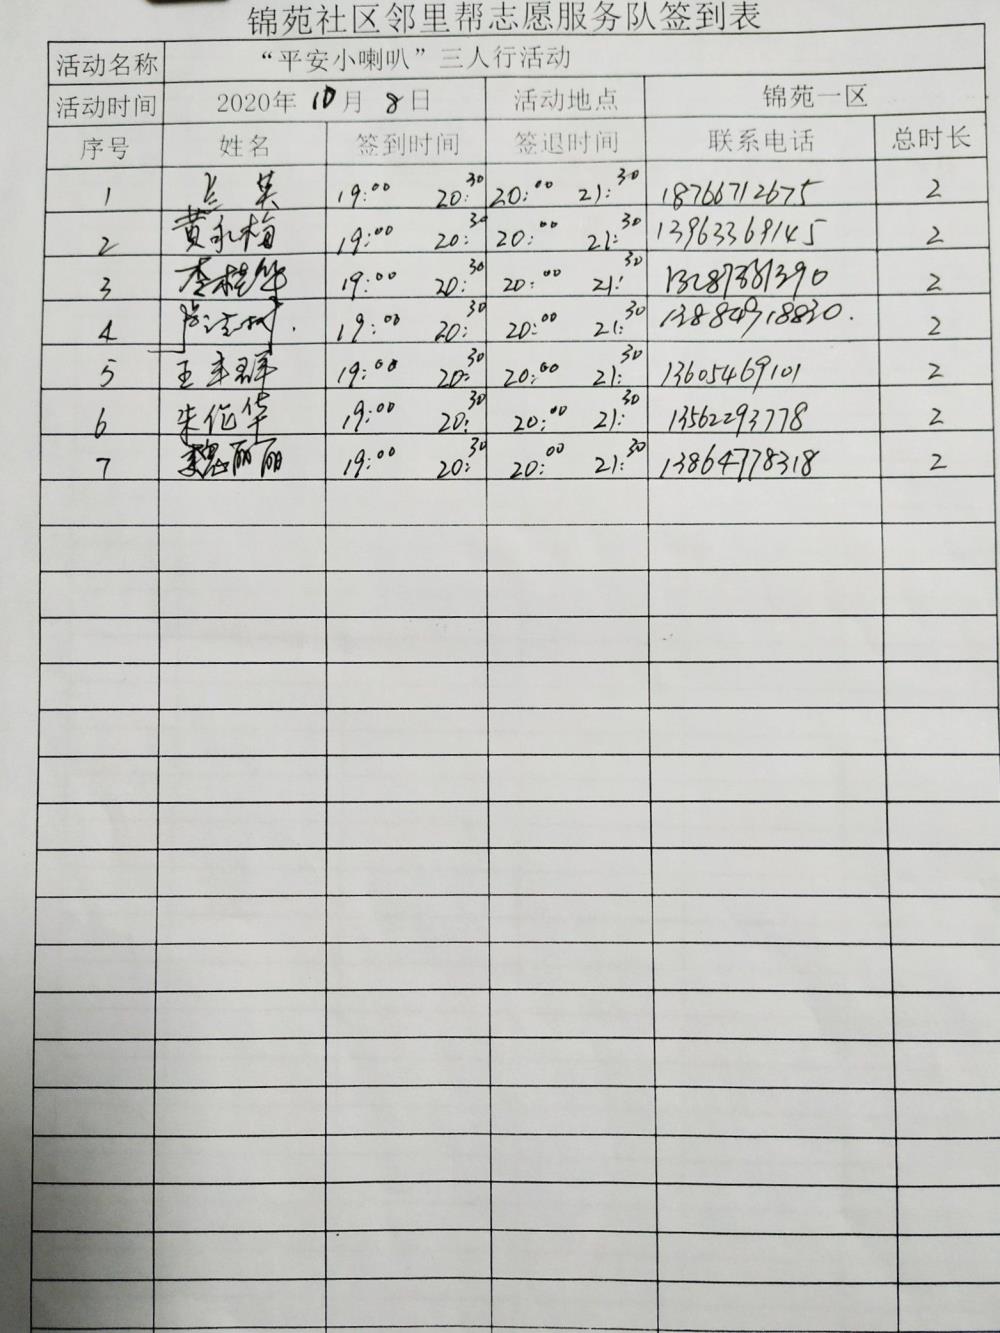 锦苑社区邻里帮志愿服务队签到表
活动名称 “平安小喇叭”三人行活动
活动时间 2020年 10月 8日 活动地点 锦苑一区
序号 姓名 签到时间 签退时间 联系电话 总时长
1 英 19:00 20:30 20:00 21:30 18766712675 2
2 黄永梅 19:00 20:30 20:00 21:30 13963369145 2
3 李桂华 19:00 20:30 20:00 21:30 2
4 19:00 20:30 20:00 21:30 2
5 王群 19:00 20:30 20:00 21:30 13605469101 2
6 朱作华 19:00 20:30 20:00 21:30 13562293778 2
7 魏丽丽 19:00 20:30 20:00 21:30 13864778318 2